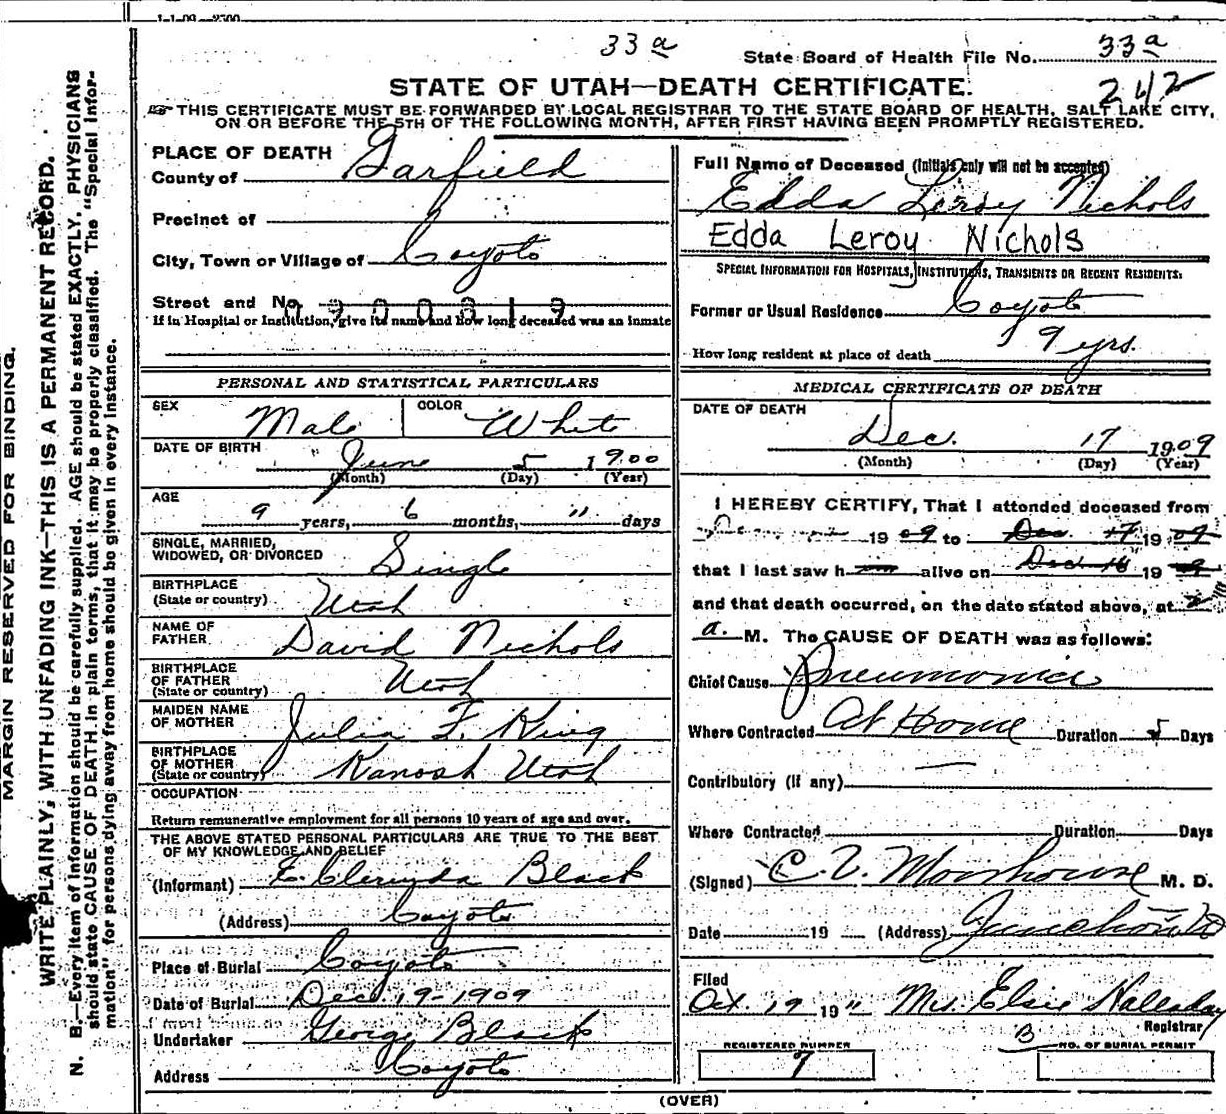 1-1-09—2500
33a
State Board of Health File No. 33a
242
STATE OF UTAH—DEATH CERTIFICATE.
☞ THIS CERTIFICATE MUST BE FORWARDED BY LOCAL REGISTRAR TO THE STATE BOARD OF HEALTH, SALT LAKE CITY,
ON OR BEFORE THE 5TH OF THE FOLLOWING MONTH, AFTER FIRST HAVING BEEN PROMPTLY REGISTERED.
MARGIN RESERVED FOR BINDING.
WRITE PLAINLY, WITH UNFADING INK—THIS IS A PERMANENT RECORD.
N. B.—Every item of information should be carefully supplied. AGE should be stated EXACTLY. PHYSICIANS
should state CAUSE OF DEATH in plain terms, that it may be properly classified. The "Special Infor-
mation" for persons dying away from home should be given in every instance.
PLACE OF DEATH
County of Garfield
Precinct of
City, Town or Village of Coyoto
Street and No.
0900819
If in Hospital or Institution, give its name and how long deceased was an inmate
PERSONAL AND STATISTICAL PARTICULARS
SEX Male COLOR White
DATE OF BIRTH June 5 1900
(Month) (Day) (Year)
AGE
9 years, 6 months, " days
SINGLE, MARRIED,
WIDOWED, OR DIVORCED Single
BIRTHPLACE
(State or country) Utah
NAME OF
FATHER David Nichols
BIRTHPLACE
OF FATHER
(State or country) Utah
MAIDEN NAME
OF MOTHER Julia F. King
BIRTHPLACE
OF MOTHER
(State or country) Kanosh Utah
OCCUPATION
Return remunerative employment for all persons 10 years of age and over.
THE ABOVE STATED PERSONAL PARTICULARS ARE TRUE TO THE BEST
OF MY KNOWLEDGE AND BELIEF
(Informant) E. Clerinda Black
(Address) Coyoto
Place of Burial Coyoto
Date of Burial Dec 19-1909
Undertaker George Black
Address Coyoto
Full Name of Deceased (Initials only will not be accepted)
Edda Leroy Nichols
Edda Leroy Nichols
SPECIAL INFORMATION FOR HOSPITALS, INSTITUTIONS, TRANSIENTS OR RECENT RESIDENTS:
Former or Usual Residence Coyoto
How long resident at place of death 9 yrs.
MEDICAL CERTIFICATE OF DEATH
DATE OF DEATH
Dec. 17 1909
(Month) (Day) (Year)
I HEREBY CERTIFY, That I attended deceased from
1909 to Dec 17 1909
that I last saw h alive on Dec 16 19
and that death occurred, on the date stated above, at 2
a. M. The CAUSE OF DEATH was as follows:
Chief Cause Pneumonia
Where Contracted At Home Duration 5 Days
Contributory (if any) —
Where Contracted Duration Days
(Signed) C. V. M. D.
Date 19 (Address)
Filed
Oct. 19 19 " Mrs. Elsie Halladay
Registrar
B
REGISTERED NUMBER
7
NO. OF BURIAL PERMIT
(OVER)